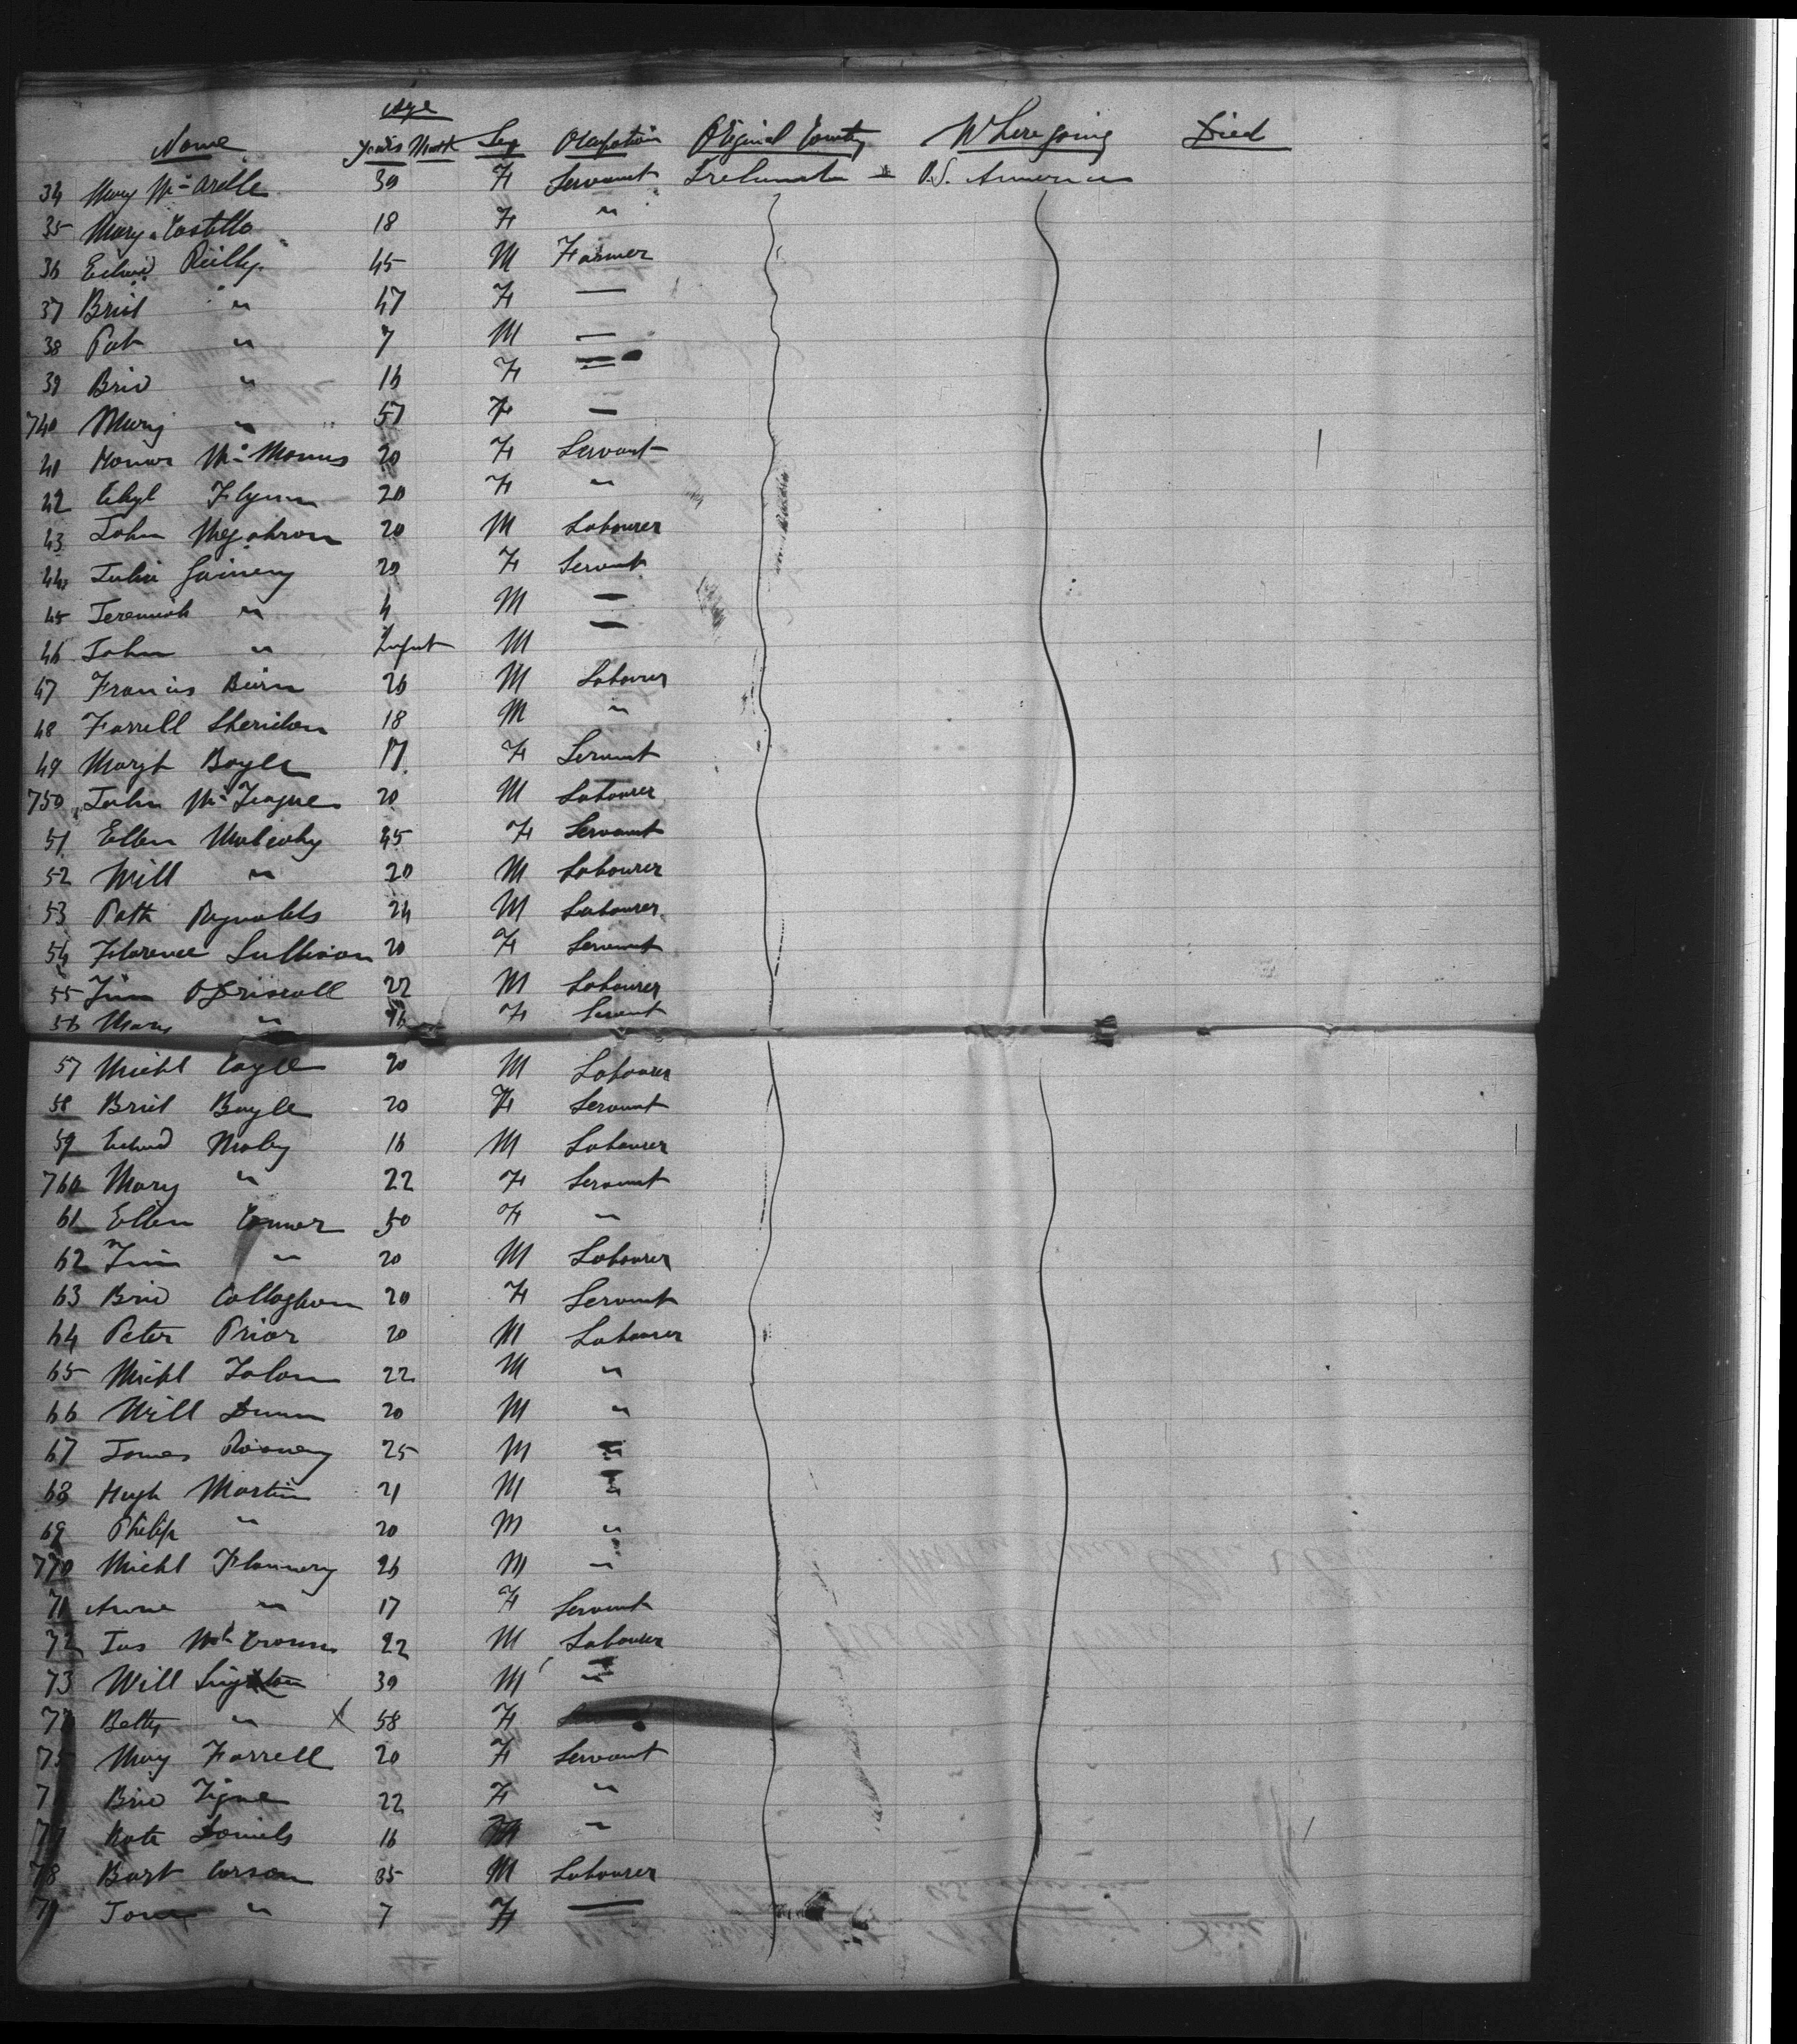 Age
Name Years Month Sex Occupation Original County Where going Died
34 Mary Mc Ardle 30 F Servant Ireland U.S. America
35 Mary Costello 18 F "
36 Edwd Reilly 45 M Farmer
37 Brid " 47 F —
38 Pat " 7 M —
39 Brid " 16 F —
740 Mary " 57 F —
41 Honor Mc Manus 20 F Servant
42 Flynn 20 F "
43 John Megahran 20 M Labourer
44 Julia Gainery 20 F Servant
45 Jeremiah " 4 M —
46 John " Infant M —
47 Francis Beirn 26 M Labourer
48 Farrell Sheridan 18 M "
49 Margt Boyle 17 F Servant
750 John Mc Teague 20 M Labourer
51 Ellen 45 F Servant
52 Will " 20 M Labourer
53 Patk Reynolds 24 M Labourer
54 Florence Sullivan 20 F Servant
55 Tim O Driscoll 22 M Labourer
56 Mary " 16 F Servant
57 Michl Coyle 20 M Labourer
58 Brid Boyle 20 F Servant
59 Edwd 16 M Labourer
760 Mary " 22 F Servant
61 Ellen Connor 50 F "
62 Tim " 20 M Labourer
63 Brid Callaghan 20 F Servant
64 Peter Prior 20 M Labourer
65 Michl 22 M "
66 Will Dunn 20 M "
67 James Rooney 25 M "
68 Hugh Martin 21 M "
69 Philip " 20 M "
770 Michl Flannery 26 M "
71 Anne " 17 F Servant
72 Jas 22 M Labourer
73 Will 30 M "
Betty " X 58 F
75 Mary Farrell 20 F Servant
7 Brid Tigne 22 F "
77 Kate Daniels 16 "
78 Bart Corson 35 M Labourer
" 7 F —